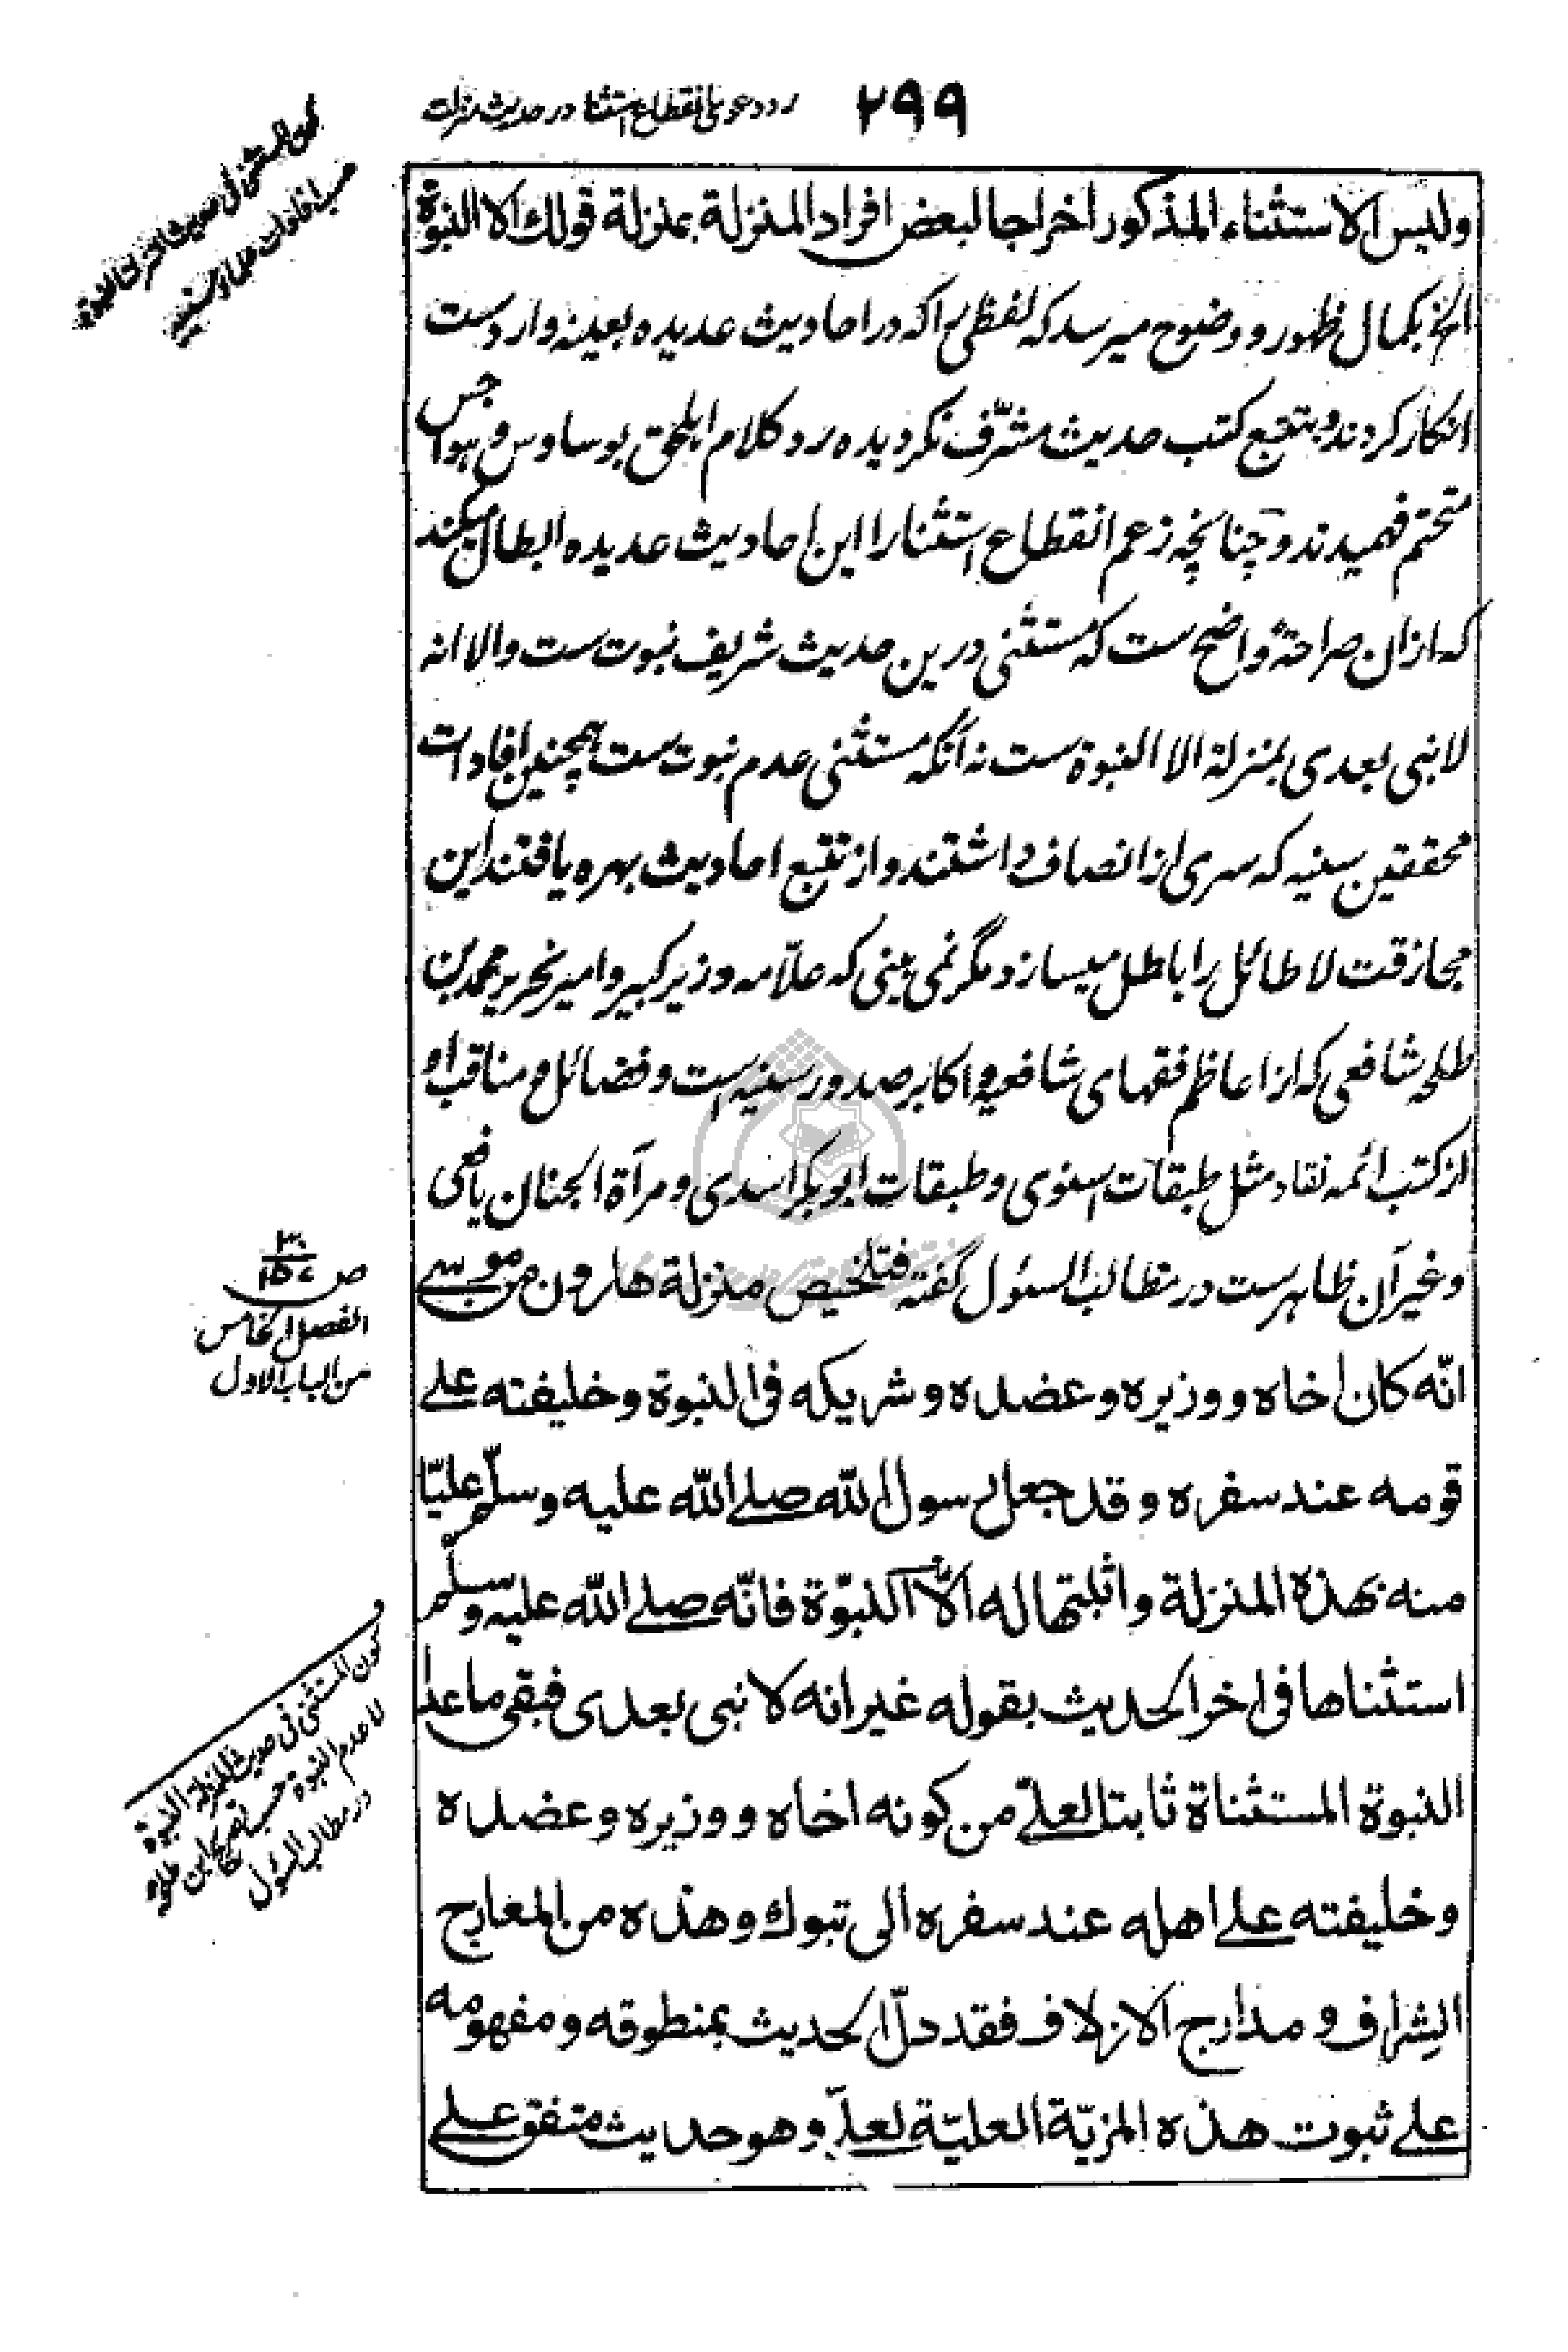 ۲۹۹
رد دعوی انقطاع استثنا در حدیث منزلت
ولیس الاستثناء المذکور اخراجا لبعض افراد المنزلة بمنزلة قولك الا النبوة
الخ بکمال ظهور و وضوح میرسد که لفظی را که در احادیث عدیده بعینه وارد ست
انکار کردند و بتتبع کتب حدیث مشرّف نگردیده رد کلام اهل حق بوساوس و هواجس
متحتم فهمیدند و چنانچه زعم انقطاع استثنا را این احادیث عدیده ابطال میکند
که ازان صراحةً واضح ست که مستثنی درین حدیث شریف نبوت ست و الا انه
لا نبی بعدی بمنزلة الا النبوة ست نه آنکه مستثنی عدم نبوت ست همچنین افادات
محققین سنیه که سری از انصاف داشتند و از تتبع احادیث بهره یافتند این
مجازفت لا طائل را باطل میسازد مگر نمی بینی که علّامه وزیر کبیر و امیر نحریر محمد بن
طلحه شافعی که از اعاظم فقهای شافعیه و اکابر صدور سنیه ست و فضائل و مناقب او
از کتب ائمه نقاد مثل طبقات اسنوی و طبقات ابو بکر اسدی و مرآة الجنان یافعی
و غیر آن ظاهرست در مطالب السئول گفته فتلخیص منزلة هارون من موسے
انّه کان اخاه و وزیره و عضده و شریکه فی النبوة و خلیفته علے
قومه عند سفره و قد جعل رسول الله صلے الله علیه وسلّم علیّا
منه بهذه المنزلة و اثبتها له الّا النبوّة فانّه صلے الله علیه وسلّم
استثناها فی اخر الحدیث بقوله غیر انه لا نبی بعدی فبقی ما عدا
النبوة المستثناة ثابتا لعلیّ من کونه اخاه و وزیره و عضده
و خلیفته علے اهله عند سفره الی تبوك و هذه من المعارج
الشراف و مدارج الازلاف فقد دلّ الحدیث بمنطوقه و مفهومه
علے ثبوت هذه المزیّة العلیّة لعلیّ و هو حدیث متفق علے
ص
الفصل الخامس
من الباب الاول
کون المستثنی فی حدیث المنزلة النبوة
لا عدم النبوة حسب تصریح ابن طلحة
در مطالب السئول